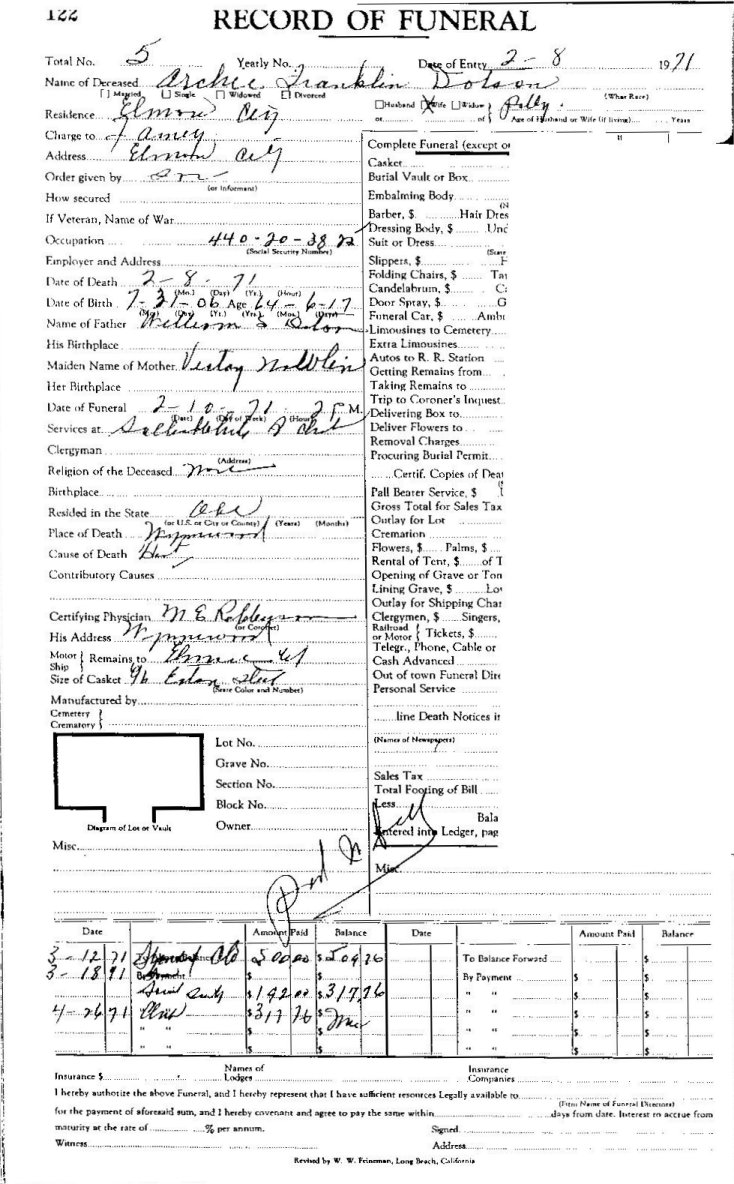 122
RECORD OF FUNERAL
Total No. 5 Yearly No. Date of Entry 2-8 1971
Name of Deceased Archie Franklin Dotson
Married Single Widowed Divorced (What Race)
Residence Elmore City Husband Wife Widow of Polly
or of Age of Husband or Wife (if living) Years
Charge to Family
Address Elmore City
Order given by Son
(or Informant)
How secured
If Veteran, Name of War
Occupation 440-20-3822
(Social Security Number)
Employer and Address
Date of Death 2-8-71
(Mo.) (Day) (Yr.) (Hour)
Date of Birth 7-21-06 Age 64-6-17
(Mo.) (Day) (Yr.) (Yrs.) (Mos.) (Days)
Name of Father William S Dotson
His Birthplace
Maiden Name of Mother
Her Birthplace
Date of Funeral 2-10-71 2 P.M.
(Date) (Day of Week) (Hour)
Services at
Clergyman
(Address)
Religion of the Deceased None
Birthplace
Resided in the State
(or U.S. or City or County) (Years) (Months)
Place of Death Wynnewood
Cause of Death Heart
Contributory Causes
Certifying Physician M E Robberson
(or Coroner)
His Address Wynnewood
Motor Ship Remains to Elmore City
Size of Casket
(State Color and Number)
Manufactured by
Cemetery
Crematory
Lot No.
Grave No.
Section No.
Block No.
Owner
Diagram of Lot or Vault
Misc.
Complete Funeral (except o
Casket
Burial Vault or Box
Embalming Body
Barber, $ Hair Dres
Dressing Body, $ Und
Suit or Dress
(State
Slippers, $
Folding Chairs, $ Tar
Candelabrum, $
Door Spray, $ G
Funeral Car, $ Ambu
Limousines to Cemetery
Extra Limousines
Autos to R. R. Station
Getting Remains from
Taking Remains to
Trip to Coroner's Inquest
Delivering Box to
Deliver Flowers to
Removal Charges
Procuring Burial Permit
Certif. Copies of Dea
Pall Bearer Service, $
Gross Total for Sales Tax
Outlay for Lot
Cremation
Flowers, $ Palms, $
Rental of Tent, $ of T
Opening of Grave or Tom
Lining Grave, $ Lo
Outlay for Shipping Char
Clergymen, $ Singers,
Railroad or Motor Tickets, $
Telegr., Phone, Cable or
Cash Advanced
Out of town Funeral Dire
Personal Service
line Death Notices in
(Names of Newspapers)
Sales Tax
Total Footing of Bill
Less
Bala
Entered into Ledger, pag
Misc.
Pd in full
Date Amount Paid Balance Date Amount Paid Balance
3-12 71 500.00 $509.76 To Balance Forward $
3-18 71 By Payment $ $ By Payment $ $
Social Security $192.00 $317.76 " " $ $
4-26 71 $317.76 " " $ $
" " $ $ " " $ $
" " $ $ " " $ $
Insurance $ Names of Lodges Insurance Companies
I hereby authorize the above Funeral, and I hereby represent that I have sufficient resources Legally available to
(Firm Name of Funeral Directors)
for the payment of aforesaid sum, and I hereby covenant and agree to pay the same within days from date. Interest to accrue from
maturity at the rate of % per annum. Signed
Witness Address
Revised by W. W. Freineman, Long Beach, California